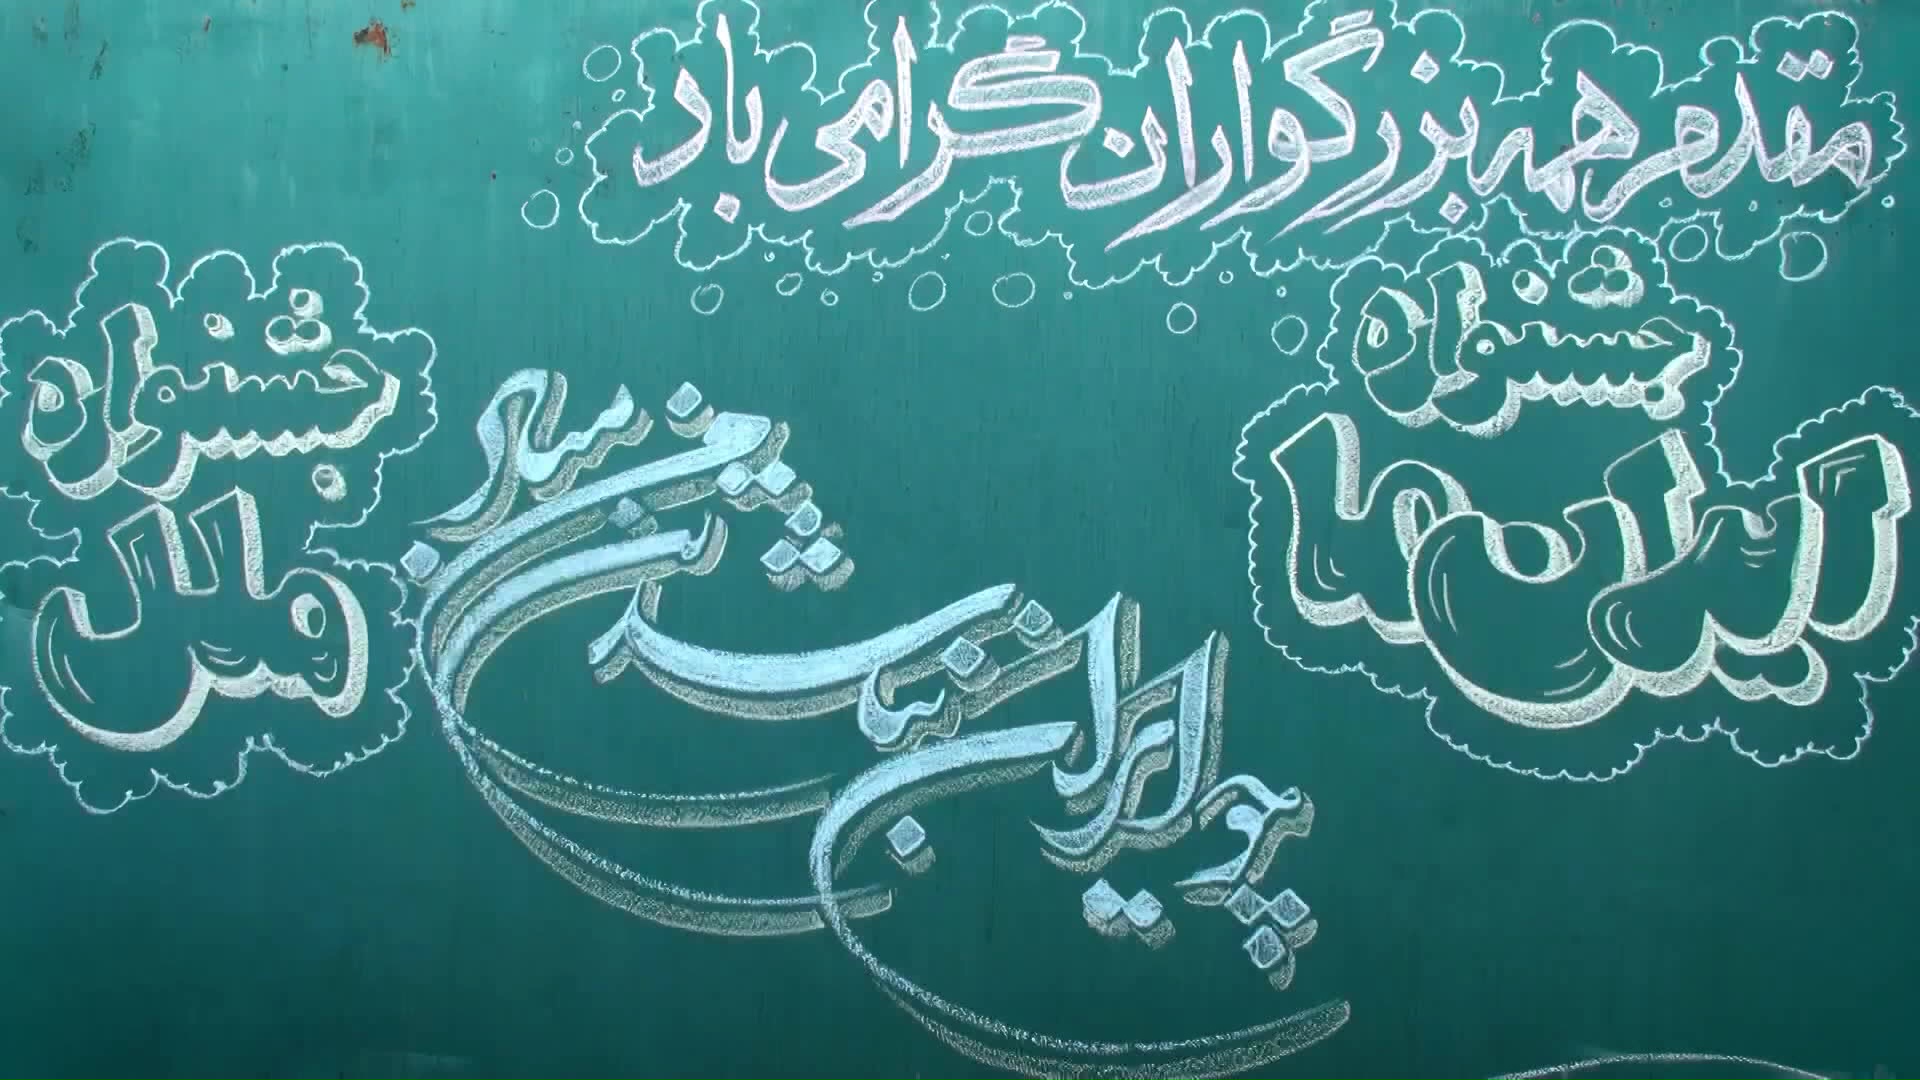 مقدم همه بزرگواران گرامی باد
جشنواره
ایران ما
چو ایران نباشد تن من مباد
جشنواره